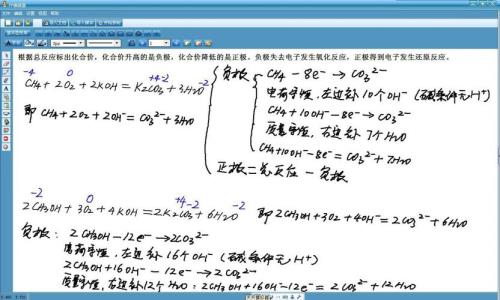 根据总反应标出化合价，化合价升高的是负极，化合价降低的是正极。负极失去电子发生氧化反应，正极得到电子发生还原反应。
-4 0 +4-2 -2
CH4 + 2O2 + 2KOH = K2CO3 + 3H2O
即 CH4 + 2O2 + 2OH⁻ = CO3²⁻ + 3H2O
负极
CH4 - 8e⁻ → CO3²⁻
电荷守恒，左边补10个OH⁻ (碱条件无H⁺)
CH4 + 10OH⁻ - 8e⁻ → CO3²⁻
质量守恒，右边补7个H2O
CH4 + 10OH⁻ - 8e⁻ = CO3²⁻ + 7H2O
正极 = 总反应 - 负极
-2 0 +4-2 -2
2CH3OH + 3O2 + 4KOH = 2K2CO3 + 6H2O 即 2CH3OH + 3O2 + 4OH⁻ = 2CO3²⁻ + 6H2O
负极： 2CH3OH - 12e⁻ → 2CO3²⁻
电荷守恒，左边补16个OH⁻ (碱条件无H⁺)
2CH3OH + 16OH⁻ - 12e⁻ → 2CO3²⁻
质量守恒，右边补12个H2O：2CH3OH + 16OH⁻ - 12e⁻ = 2CO3²⁻ + 12H2O